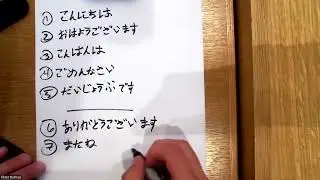 ① こんにちは
② おはようございます
③ こんばんは
④ ごめんなさい
⑤ だいじょうぶです
⑥ ありがとうございます
⑦ またね